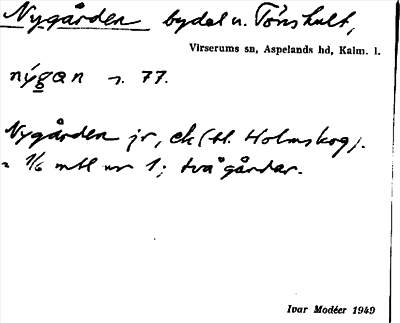 Nygården bydel u. Tönshult,
Virserums sn, Aspelands hd, Kalm. l.
nýgan 77.
Nygården jr, ek (tl. Holmskog).
= 1/6 mtl nr 1; två gårdar.
Ivar Modéer 1949